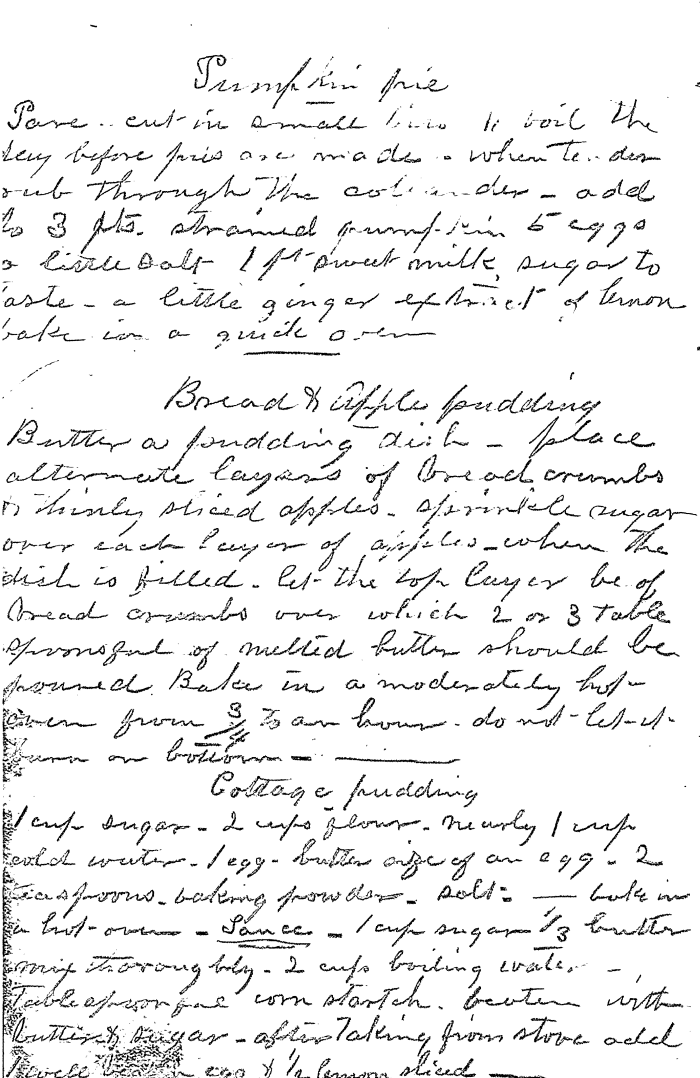 Pumpkin pie
Pare - cut in small boil the
day before pies are made - when tender
rub through the colander - add
to 3 pts. strained pumpkin 5 eggs
a little salt 1 pt sweet milk, sugar to
taste - a little ginger extract of lemon
bake in a quick oven
Bread & Apple pudding
Butter a pudding dish - place
alternate layers of bread crumbs
& thinly sliced apples - sprinkle sugar
over each layer of apples - when the
dish is filled - let the top layer be of
bread crumbs over which 2 or 3 table
spoonsful of melted butter should be
poured Bake in a moderately hot
oven from 3/4 to an hour - do not let it
burn on bottom -
Cottage pudding
1 cup sugar - 2 cups flour - nearly 1 cup
cold water - 1 egg - butter size of an egg - 2
teaspoons baking powder - salt - bake in
a hot oven - Sauce - 1 cup sugar 1/3 butter
mix thoroughly - 2 cups boiling water -
tablespoonful corn starch. beaten with
butter & sugar - after taking from stove add
1 well egg & 1/2 lemon sliced -